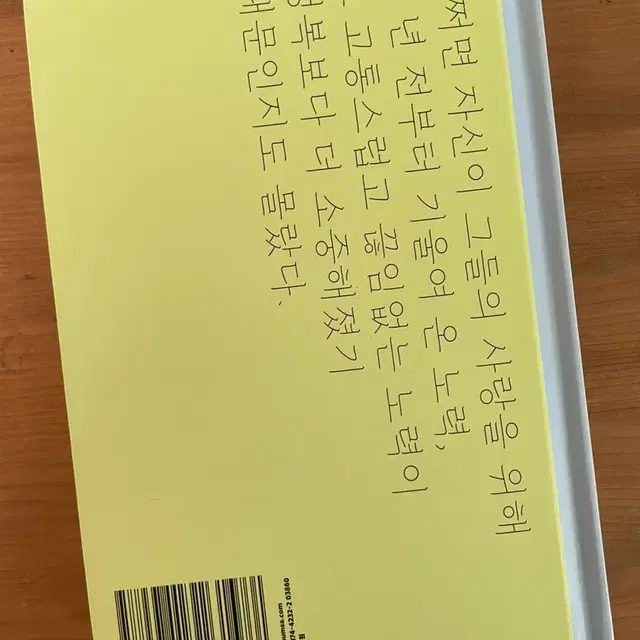 쩌면 자신이 그들의 사랑을 위해
년 전부터 기울여 온 노력,
고통스럽고 끊임없는 노력이
행복보다 더 소중해졌기
때문인지도 몰랐다.
umsa.com
974-4232-2 03860